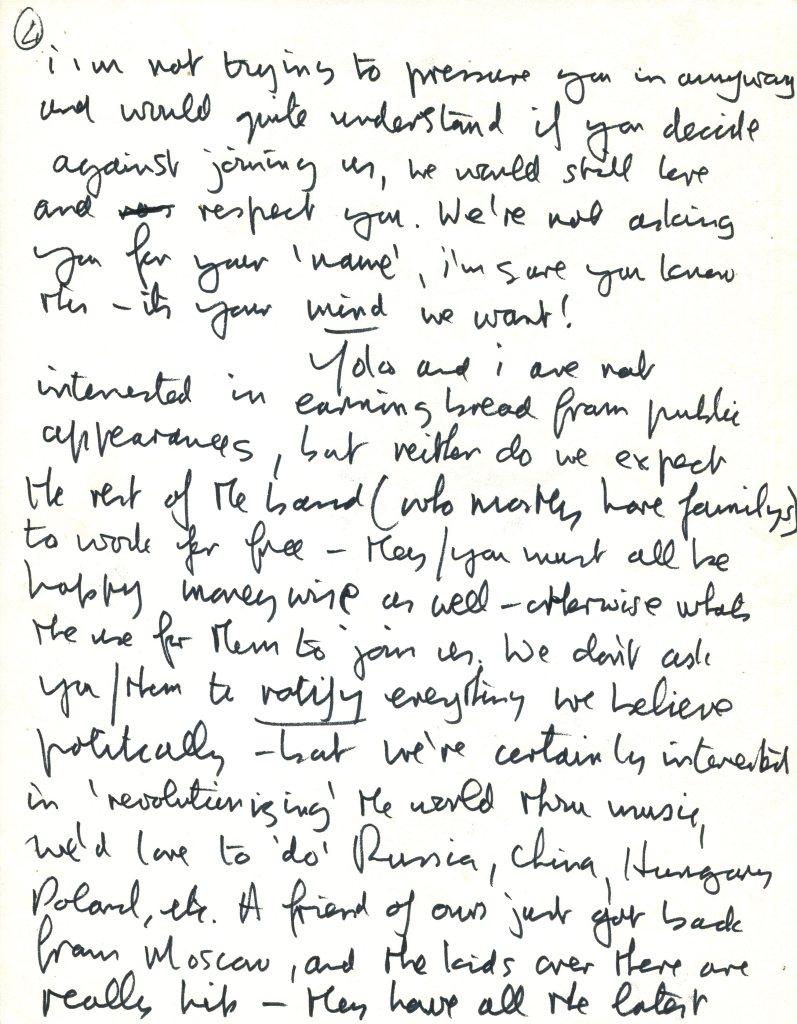 4
i'm not trying to pressure you in anyway
and would quite understand if you decide
against joining us, we would still love
and respect you. We're not asking
you for your 'name', i'm sure you know
this – its your mind we want!
Yoko and i are not
interested in earning bread from public
appearances, but neither do we expect
the rest of the band (who mostly have familys)
to work for free – they/you must all be
happy money wise as well – otherwise whats
the use for them to join us. We don't ask
you/them to ratify everything we believe
politically – but we're certainly interested
in 'revolutionizing' the world thru music,
we'd love to 'do' Russia, China, Hungary
Poland, etc. A friend of ours just got back
from Moscow, and the kids over there are
really hip – they have all the latest